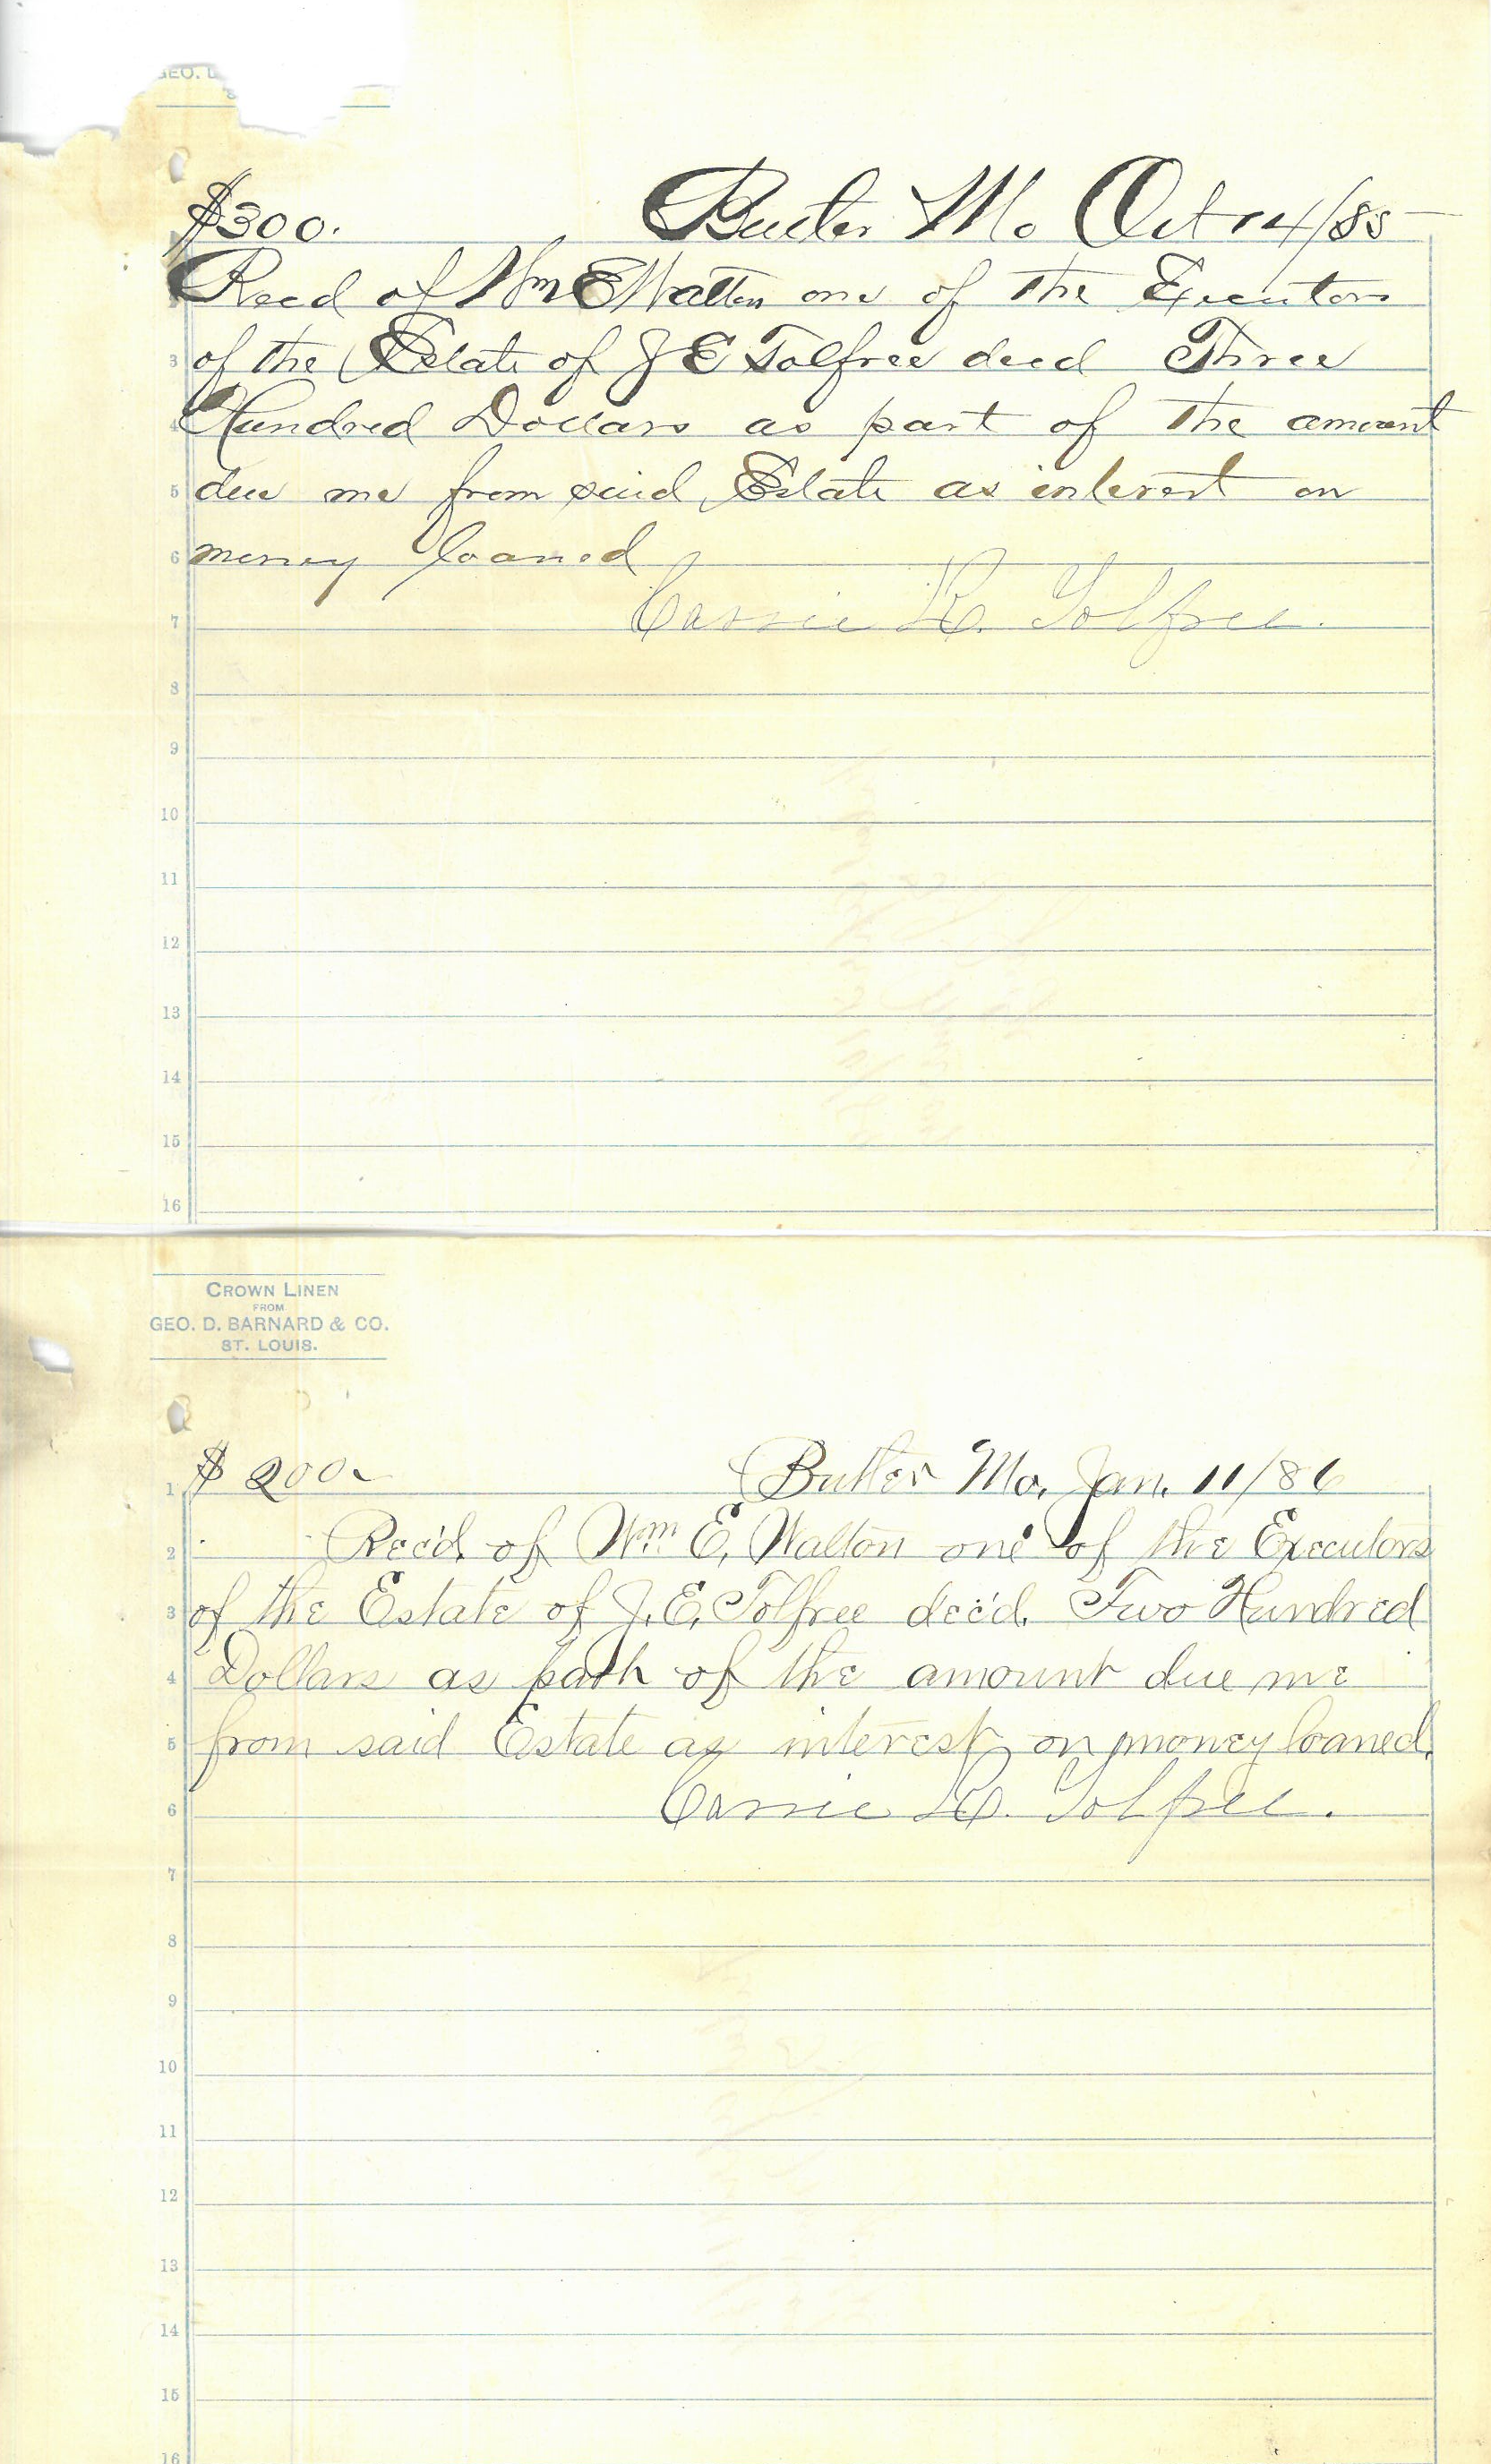 GEO. D
$300. Butler Mo Oct 14/85
Recd of Wm E Walton one of the Executors
3 of the Estate of J E Tolfree decd Three
4 Hundred Dollars as part of the amount
5 due me from said Estate as interest on
6 money loaned
7 Cassie R. Tolfree.
8
9
10
11
12
13
14
15
16
CROWN LINEN
FROM
GEO. D. BARNARD & CO.
ST. LOUIS.
1 $ 200. Butler Mo, Jan. 11/86
2 Rec'd. of Wm. E. Walton one of the Executors
3 of the Estate of J. E. Tolfree dec'd. Two Hundred
4 Dollars as part of the amount due me
5 from said Estate as interest on money loaned.
6 Cassie R. Tolfree.
7
8
9
10
11
12
13
14
15
16